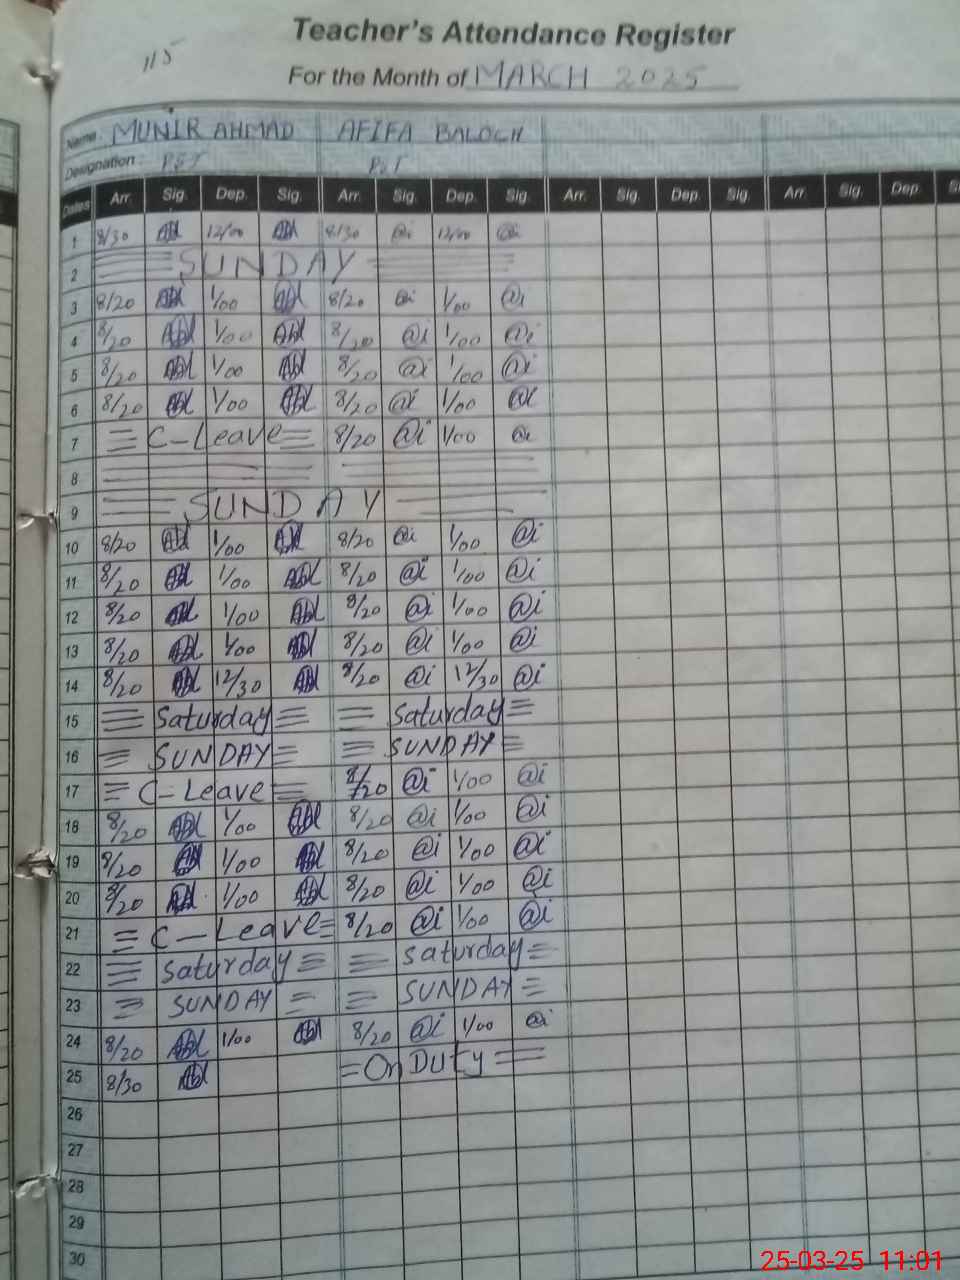 Teacher's Attendance Register
115
For the Month of MARCH 2025
Name MUNIR AHMAD AFIFA BALOCH
Designation: PST PST
Dates Arr. Sig. Dep. Sig. Arr. Sig. Dep. Sig. Arr. Sig. Dep. Sig. Arr. Sig. Dep
1 8/30 12/00 8/30 @i 12/00 @i
2 SUNDAY
3 8/20 1/00 8/20 @i 1/00 @i
4 8/20 1/00 8/20 @i 1/00 @i
5 8/20 1/00 8/20 @i 1/00 @i
6 8/20 1/00 8/20 @i 1/00 @i
7 C-Leave 8/20 @i 1/00 @i
8
9 SUNDAY
10 8/20 1/00 8/20 @i 1/00 @i
11 8/20 1/00 8/20 @i 1/00 @i
12 8/20 1/00 8/20 @i 1/00 @i
13 8/20 1/00 8/20 @i 1/00 @i
14 8/20 12/30 8/20 @i 12/30 @i
15 Saturday Saturday
16 SUNDAY SUNDAY
17 C-Leave 8/20 @i 1/00 @i
18 8/20 1/00 8/20 @i 1/00 @i
19 8/20 1/00 8/20 @i 1/00 @i
20 8/20 1/00 8/20 @i 1/00 @i
21 C-Leave 8/20 @i 1/00 @i
22 Saturday Saturday
23 SUNDAY SUNDAY
24 8/20 1/00 8/20 @i 1/00 @i
25 8/30 On DUty
26
27
28
29
30
25-03-25 11:01